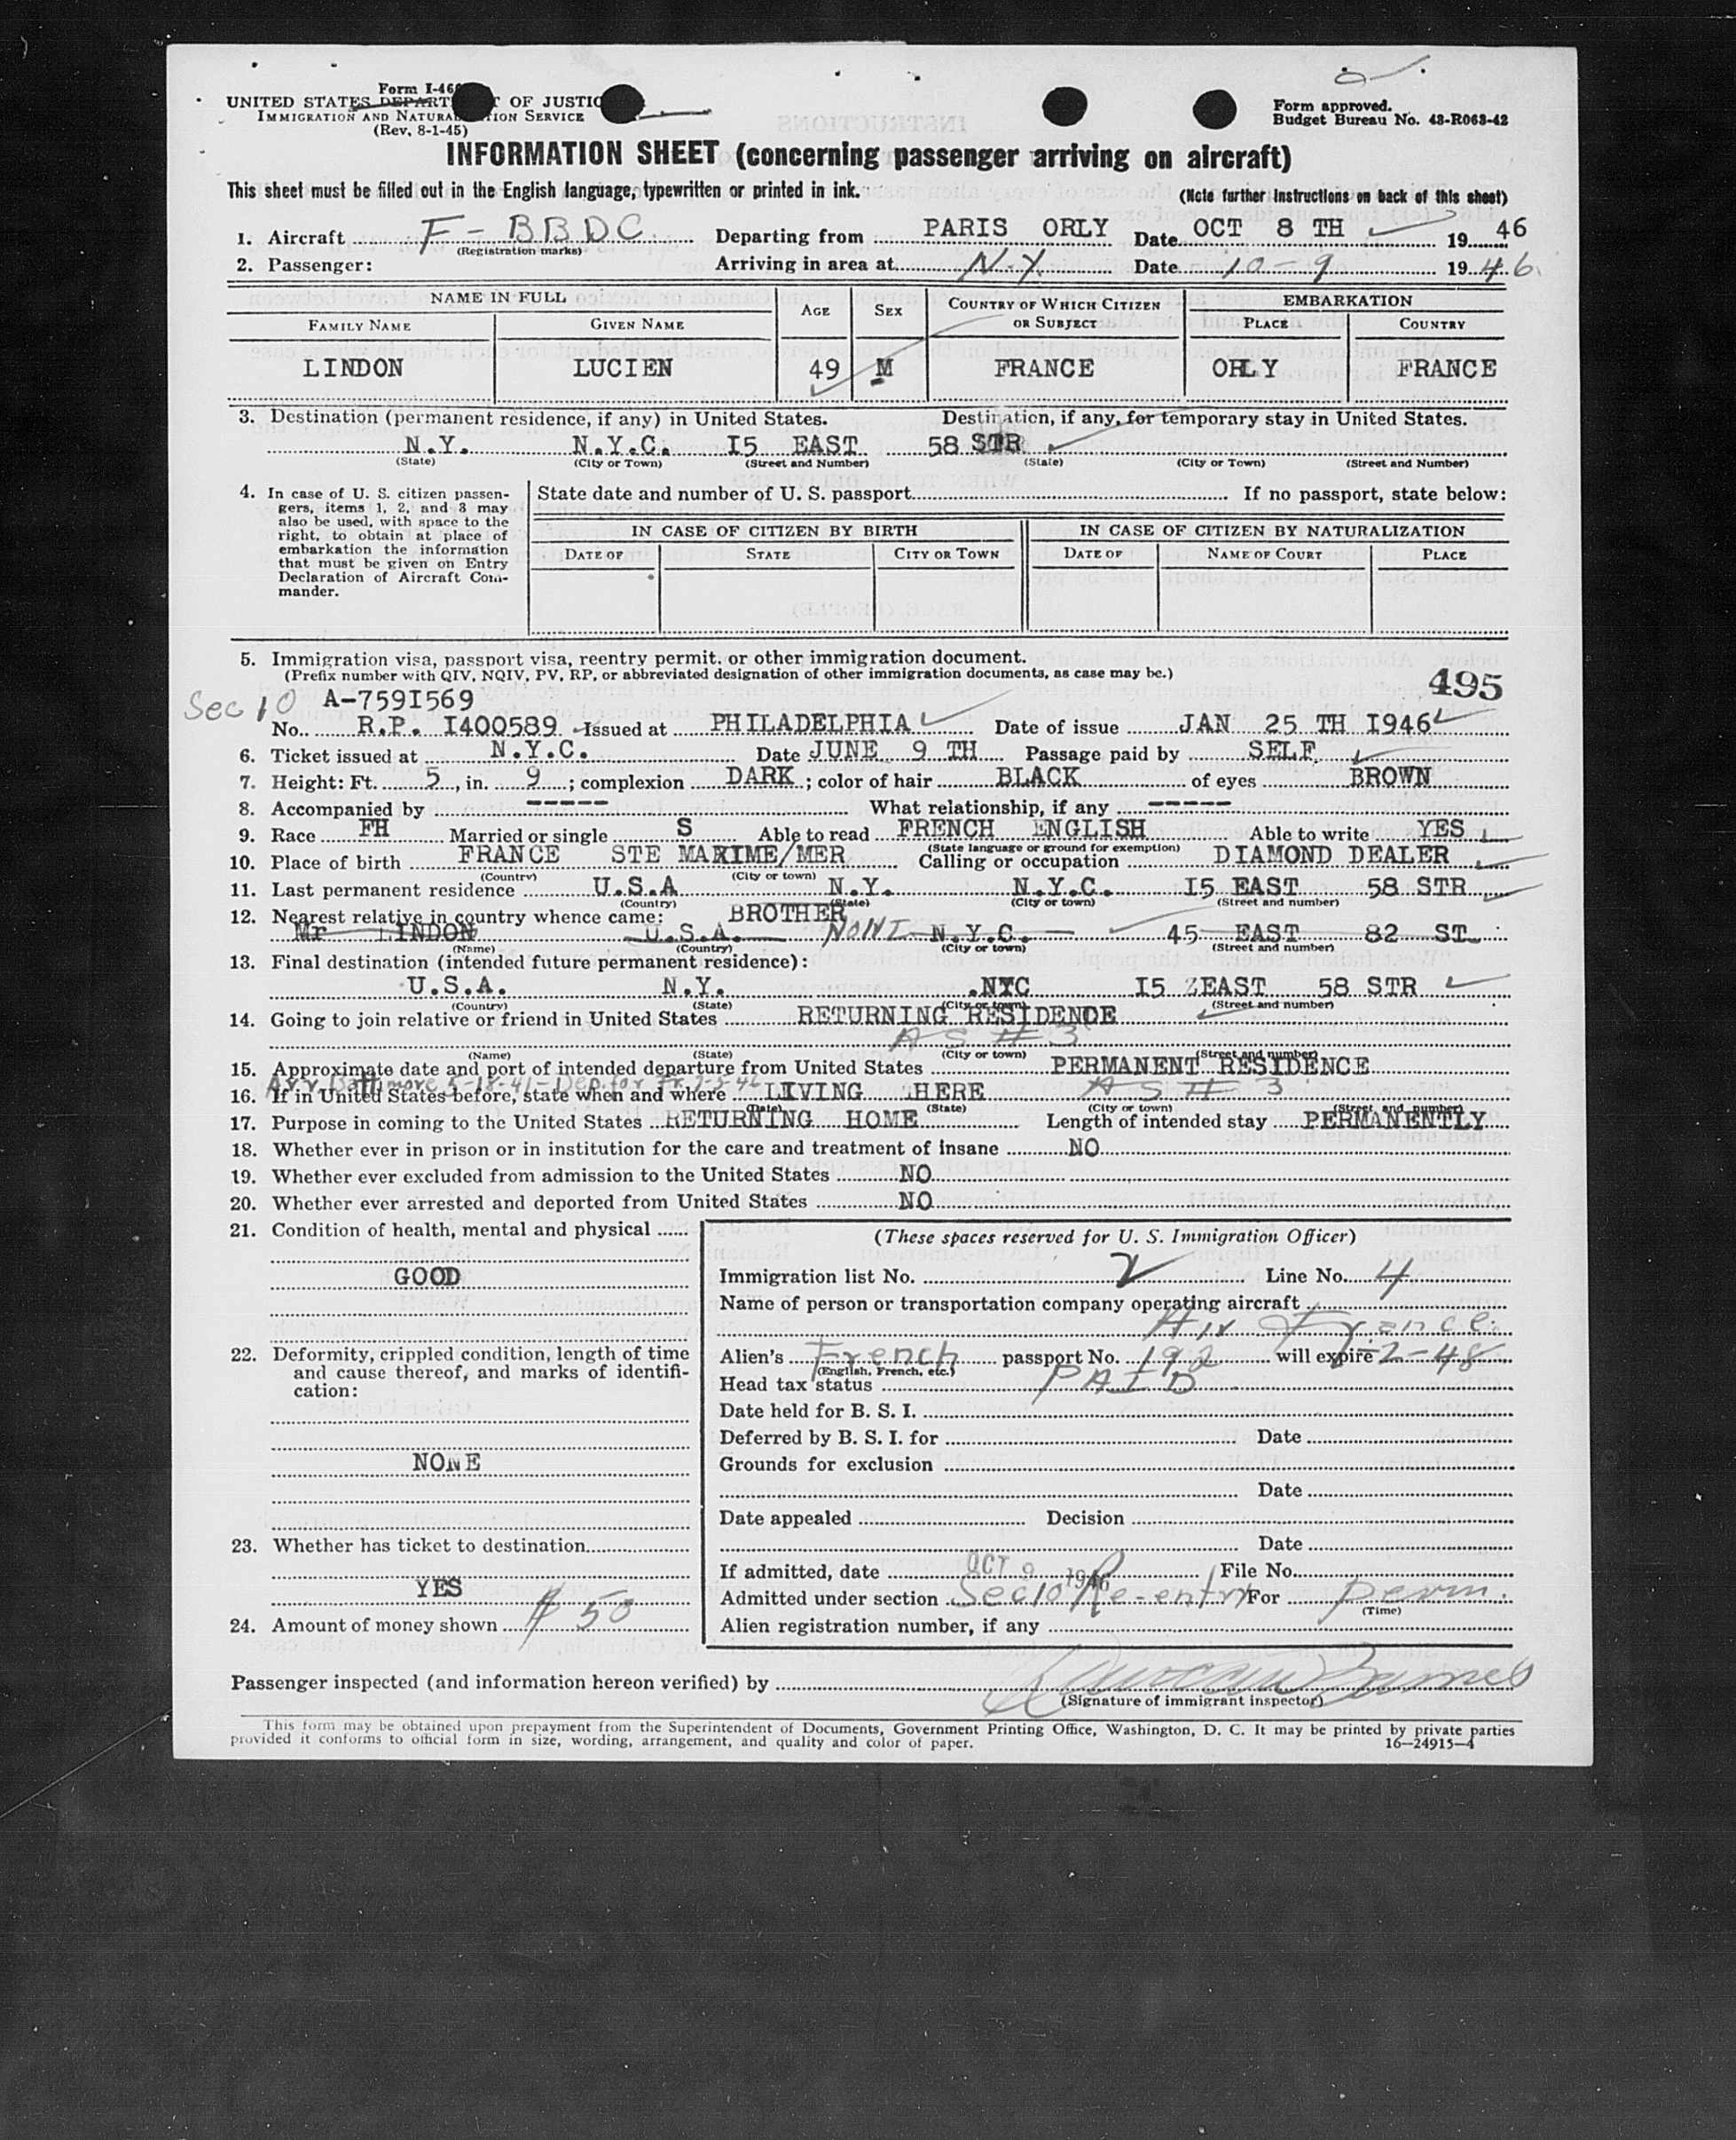 Form I-46
UNITED STATES DEPART T OF JUSTIC
IMMIGRATION AND NATURAL TION SERVICE
(Rev. 8-1-45)
Form approved.
Budget Bureau No. 43-R063-42
INFORMATION SHEET (concerning passenger arriving on aircraft)
This sheet must be filled out in the English language, typewritten or printed in ink.
(Note further instructions on back of this sheet)
1. Aircraft F-BBDC Departing from PARIS ORLY Date OCT 8 TH 1946
(Registration marks)
2. Passenger: Arriving in area at N.Y. Date 10-9 1946
NAME IN FULL AGE SEX COUNTRY OF WHICH CITIZEN OR SUBJECT EMBARKATION
FAMILY NAME GIVEN NAME PLACE COUNTRY
LINDON LUCIEN 49 M FRANCE ORLY FRANCE
3. Destination (permanent residence, if any) in United States. Destination, if any, for temporary stay in United States.
N.Y. N.Y.C. I5 EAST 58 STR
(State) (City or Town) (Street and Number) (State) (City or Town) (Street and Number)
4. In case of U. S. citizen passen-
gers, items 1, 2, and 3 may
also be used, with space to the
right, to obtain at place of
embarkation the information
that must be given on Entry
Declaration of Aircraft Com-
mander.
State date and number of U. S. passport If no passport, state below:
IN CASE OF CITIZEN BY BIRTH IN CASE OF CITIZEN BY NATURALIZATION
DATE OF STATE CITY OR TOWN DATE OF NAME OF COURT PLACE
5. Immigration visa, passport visa, reentry permit, or other immigration document.
(Prefix number with QIV, NQIV, PV, RP, or abbreviated designation of other immigration documents, as case may be.)
495
Sec 10 A-759I569
No. R.P. I400589 Issued at PHILADELPHIA Date of issue JAN 25 TH I946
6. Ticket issued at N.Y.C. Date JUNE 9 TH Passage paid by SELF
7. Height: Ft. 5, in. 9; complexion DARK; color of hair BLACK of eyes BROWN
8. Accompanied by ----- What relationship, if any -----
9. Race FH Married or single S Able to read FRENCH ENGLISH Able to write YES
(State language or ground for exemption)
10. Place of birth FRANCE STE MAXIME/MER Calling or occupation DIAMOND DEALER
(Country) (City or town)
11. Last permanent residence U.S.A N.Y. N.Y.C. I5 EAST 58 STR
(Country) (State) (City or town) (Street and number)
12. Nearest relative in country whence came: BROTHER
Mr LINDON U.S.A. NONI N.Y.C. 45 EAST 82 ST
(Name) (Country) (City or town) (Street and number)
13. Final destination (intended future permanent residence):
U.S.A. N.Y. .NYC I5 EAST 58 STR
(Country) (State) (City or town) (Street and number)
14. Going to join relative or friend in United States RETURNING RESIDENCE
AS # 3
(Name) (State) (City or town) (Street and number)
15. Approximate date and port of intended departure from United States PERMANENT RESIDENCE
Arr. Baltimore 5-18-41 - Dep. for Fr.
16. If in United States before, state when and where LIVING HERE AS # 3
(Date) (State) (City or town) (Street and number)
17. Purpose in coming to the United States RETURNING HOME Length of intended stay PERMANENTLY
18. Whether ever in prison or in institution for the care and treatment of insane NO
19. Whether ever excluded from admission to the United States NO
20. Whether ever arrested and deported from United States NO
21. Condition of health, mental and physical
GOOD
22. Deformity, crippled condition, length of time
and cause thereof, and marks of identifi-
cation:
NONE
23. Whether has ticket to destination
YES
24. Amount of money shown $ 50
(These spaces reserved for U. S. Immigration Officer)
Immigration list No. 2 Line No. 4
Name of person or transportation company operating aircraft
Air France
Alien's French passport No. 192 will expire 2-48
(English, French, etc.)
Head tax status PAID
Date held for B. S. I.
Deferred by B. S. I. for Date
Grounds for exclusion
Date
Date appealed Decision
Date
If admitted, date OCT 9 1946 File No.
Admitted under section Sec 10 Re-entry For perm.
(Time)
Alien registration number, if any
Passenger inspected (and information hereon verified) by
(Signature of immigrant inspector)
This form may be obtained upon prepayment from the Superintendent of Documents, Government Printing Office, Washington, D. C. It may be printed by private parties
provided it conforms to official form in size, wording, arrangement, and quality and color of paper.
16—24915-4